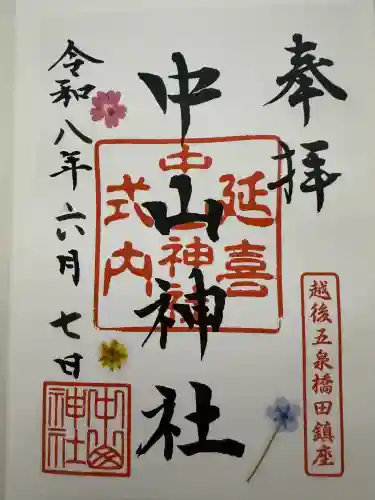 奉拝
越後五泉橋田鎮座
中山神社
延喜
中山神社
式内
令和八年六月七日
中山
神社